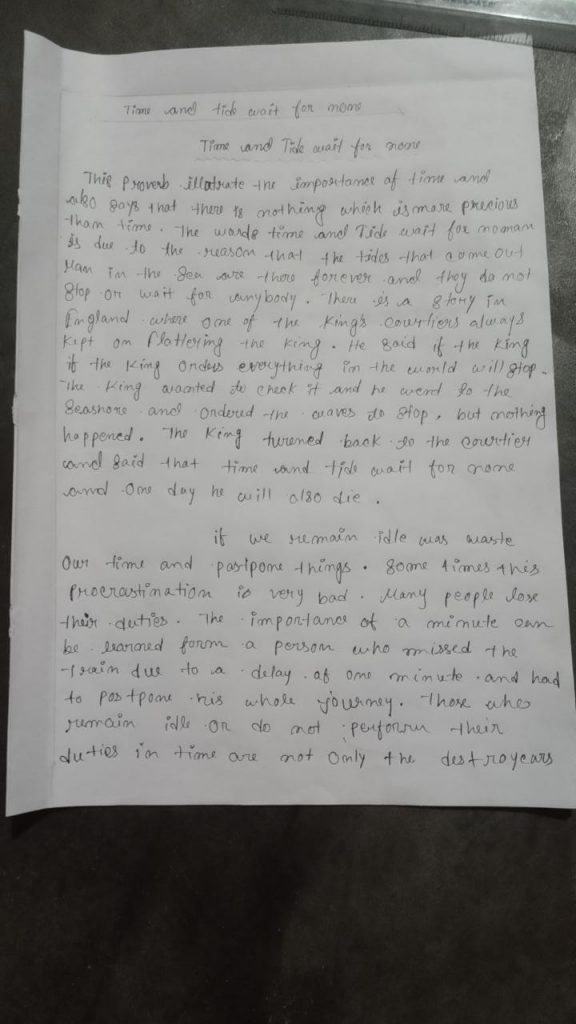 Time and tide wait for none
Time and Tide wait for none
This Proverb illstrate the importance of time and
also says that there is nothing which is more precious
than time. The words time and Tide wait for noman
is due to the reason that the tides that come out
Man in the Sea are there forever and they do not
Stop or wait for anybody. There is a story in
England where one of the King's courtiers always
kept on flattering the King. He said if the King
if the King Orders everything in the world will stop.
The King wanted to check it and he went to the
seashore and ordered the waves to stop, but nothing
happened. The King turened back to the courtier
and said that time and tide wait for none
and one day he will also die.
if we remain idle was waste
Our time and postpone things. Some times this
procrastination is very bad. Many people lose
their duties. The importance of a minute can
be learned form a person who missed the
train due to a delay of one minute and had
to postpone his whole journey. Those who
remain idle or do not perform their
duties in time are not only the destroyears